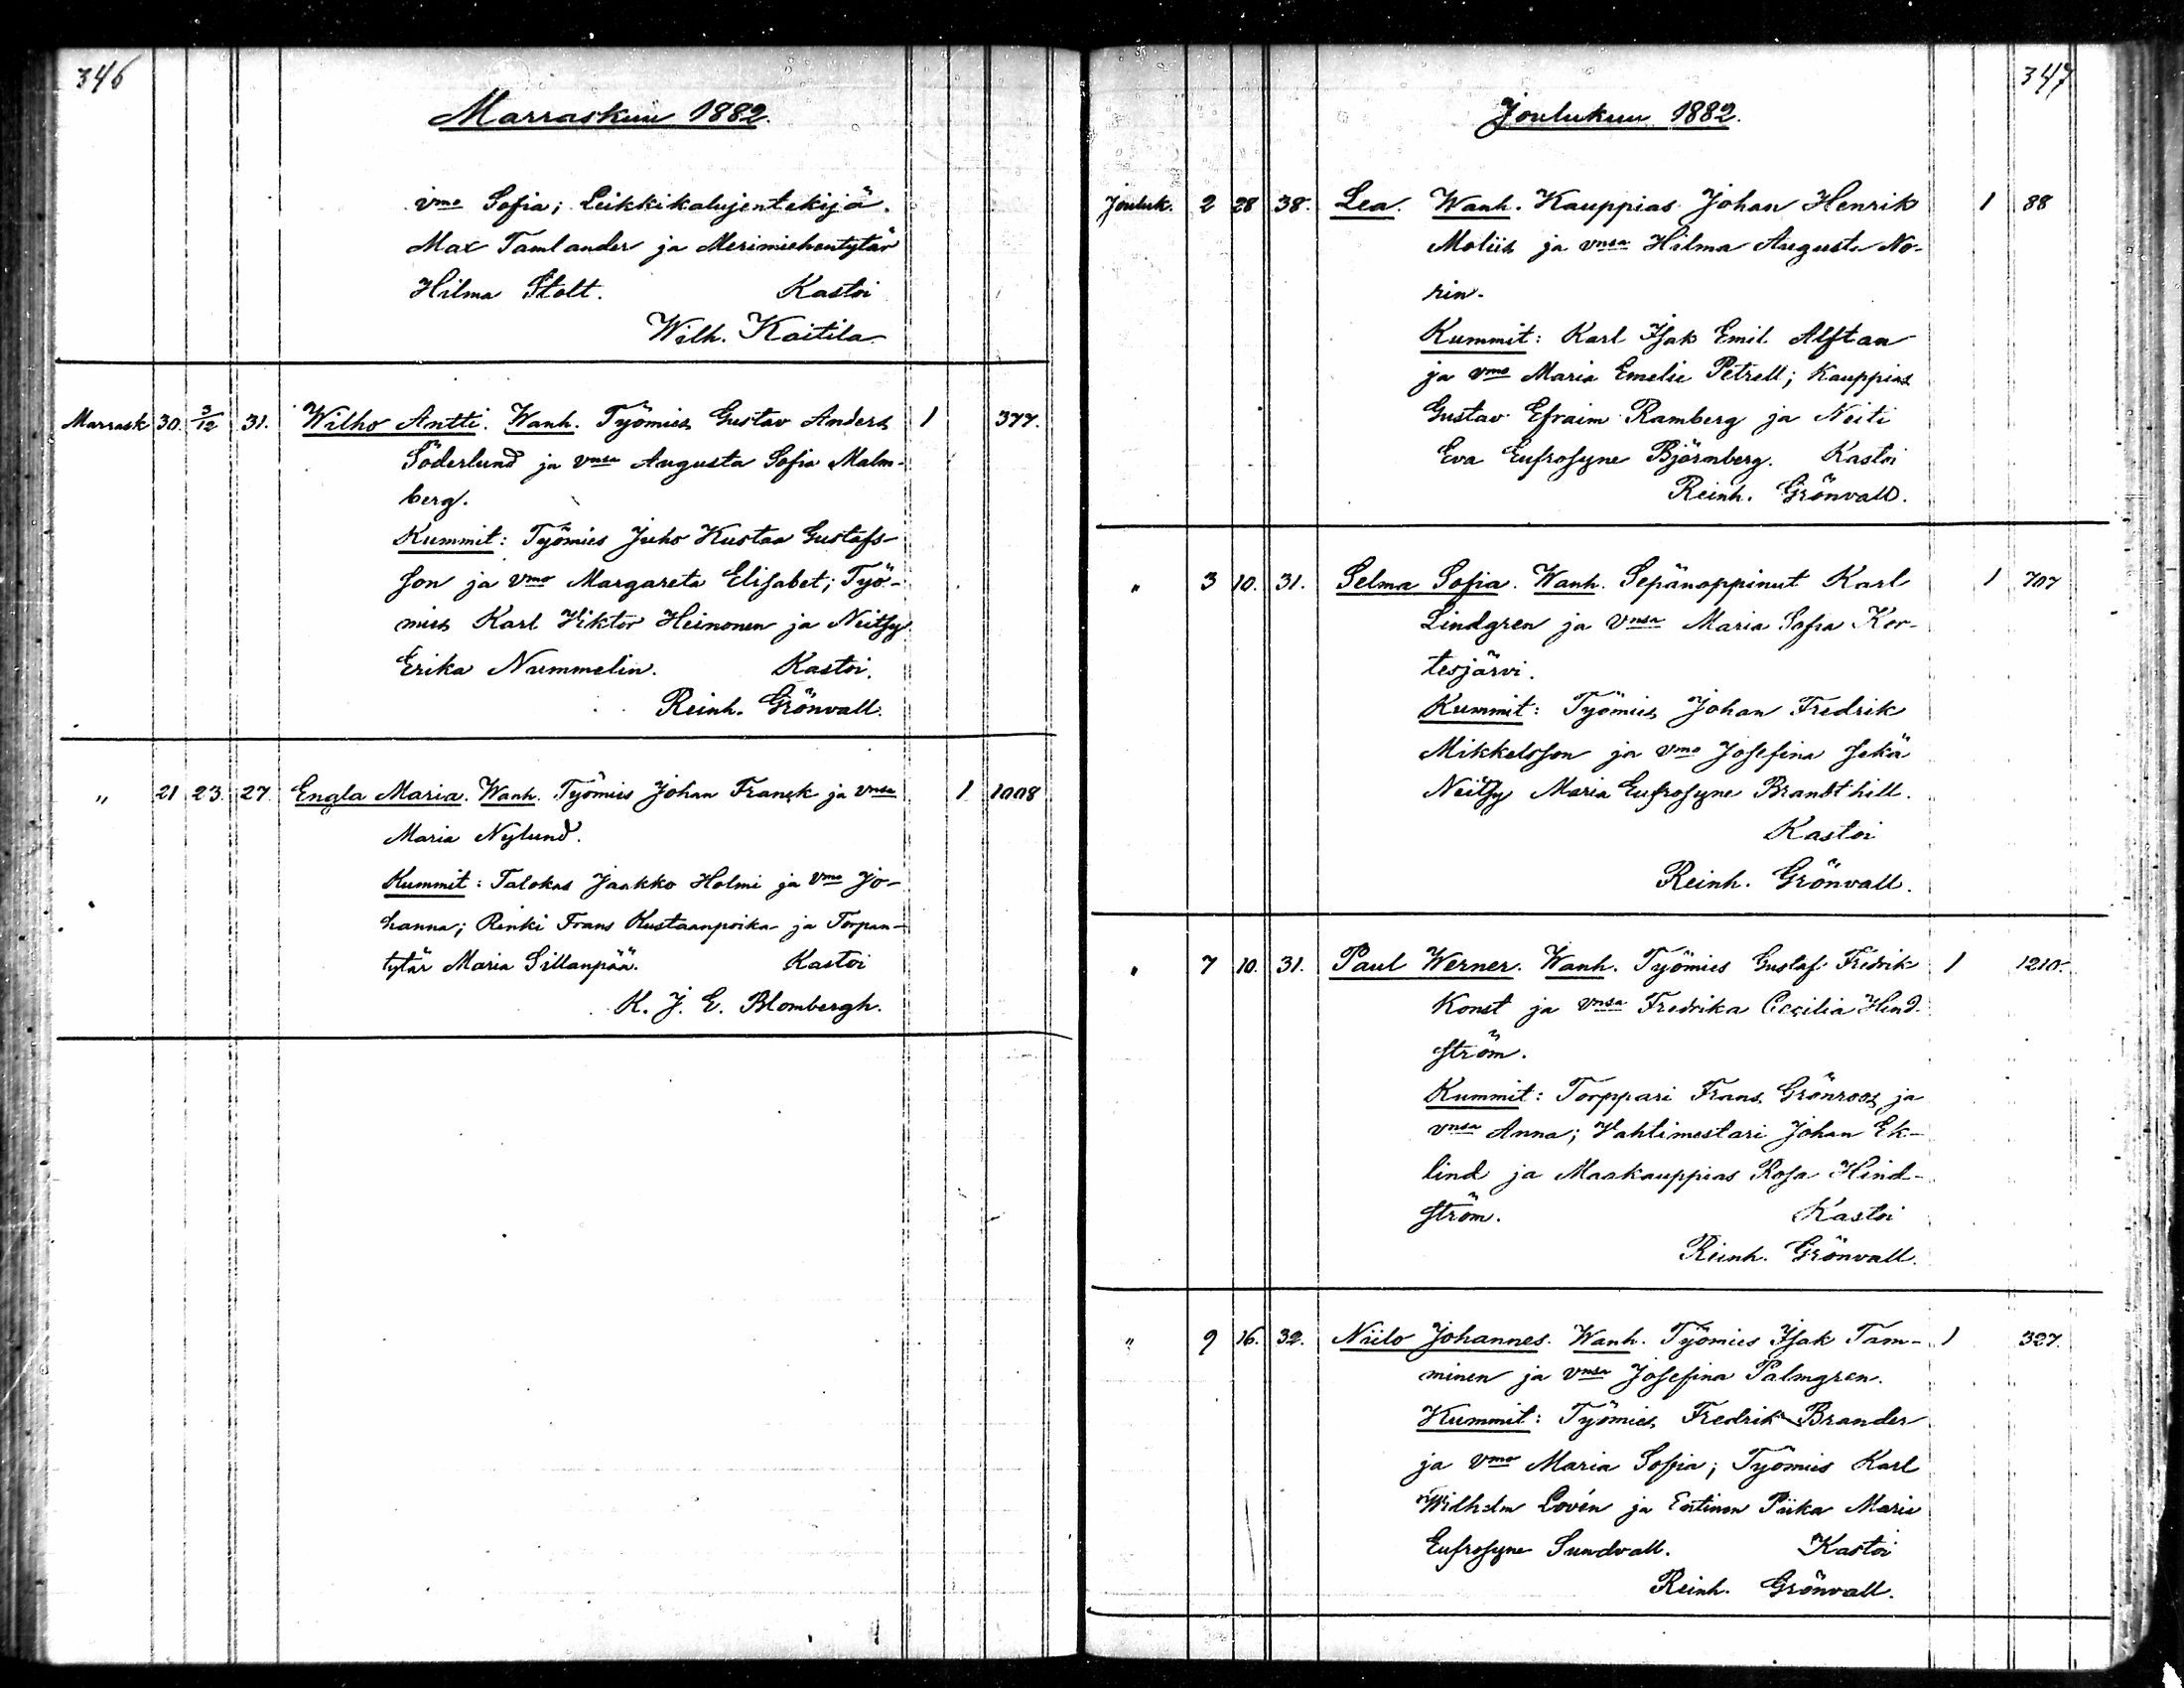 346
Marraskuu 1882.
vmo Sofia; Leikkikalujentekijä
Max Tamlander ja Merimiehentytär
Hilma Stolt. Kastoi
Wilh. Kaitila
Marrask 30. 3/12 31. Wilho Antti. Wanh. Työmies Gustav Anders 1 377.
Söderlund ja vnsa Augusta Sofia Malm-
berg.
Kummit: Työmies Juho Kustaa Gustafs-
son ja vmo Margareta Elisabet; Työ-
mies Karl Viktor Heinonen ja Neitsy
Erika Nummelin. Kastoi.
Reinh. Grönvall.
" 21 23. 27 Engla Maria. Wanh. Työmies Johan Franck ja vnsa 1 1008
Maria Nylund.
Kummit: Talokas Jaakko Holmi ja vmo Jo-
hanna; Renki Frans Kustaanpoika ja Torpan-
tytär Maria Sillanpää. Kastoi
K. J. E. Blombergh.
347
Joulukuu 1882.
Jouluk. 2 28 38. Lea. Wanh. Kauppias Johan Henrik 1 88
Moliis ja vnsa Hilma Augusta No-
rin.
Kummit: Karl Isak Emil Alftan
ja vmo Maria Emelie Petrell; Kauppias
Gustav Efraim Ramberg ja Neiti
Eva Eufrosyne Björnberg. Kastoi
Reinh. Grönvall.
" 3 10. 31. Selma Sofia. Wanh. Sepänoppinut Karl 1 707
Lindgren ja vnsa Maria Sofia Kor-
tesjärvi.
Kummit: Työmies Johan Fredrik
Mikkelsson ja vmo Josefina sekä
Neitsy Maria Eufrosyne Brandthill.
Kastoi
Reinh. Grönvall.
" 7 10. 31. Paul Werner. Wanh. Työmies Gustaf Fredrik 1 1210.
Konst ja vnsa Fredrika Cecilia Hind-
ström.
Kummit: Torppari Frans Grönroos ja
vnsa Anna; Vahtimestari Johan Ek-
lind ja Maakauppias Rosa Hind-
ström. Kastoi
Reinh. Grönvall.
" 9 16. 32. Niilo Johannes. Wanh. Työmies Isak Tam- 1 327.
minen ja vnsa Josefina Palmgren.
Kummit: Työmies Fredrik Brander
ja vmo Maria Sofia; Työmies Karl
Wilhelm Lovén ja Entinen Piika Maria
Eufrosyne Sundvall. Kastoi
Reinh. Grönvall.